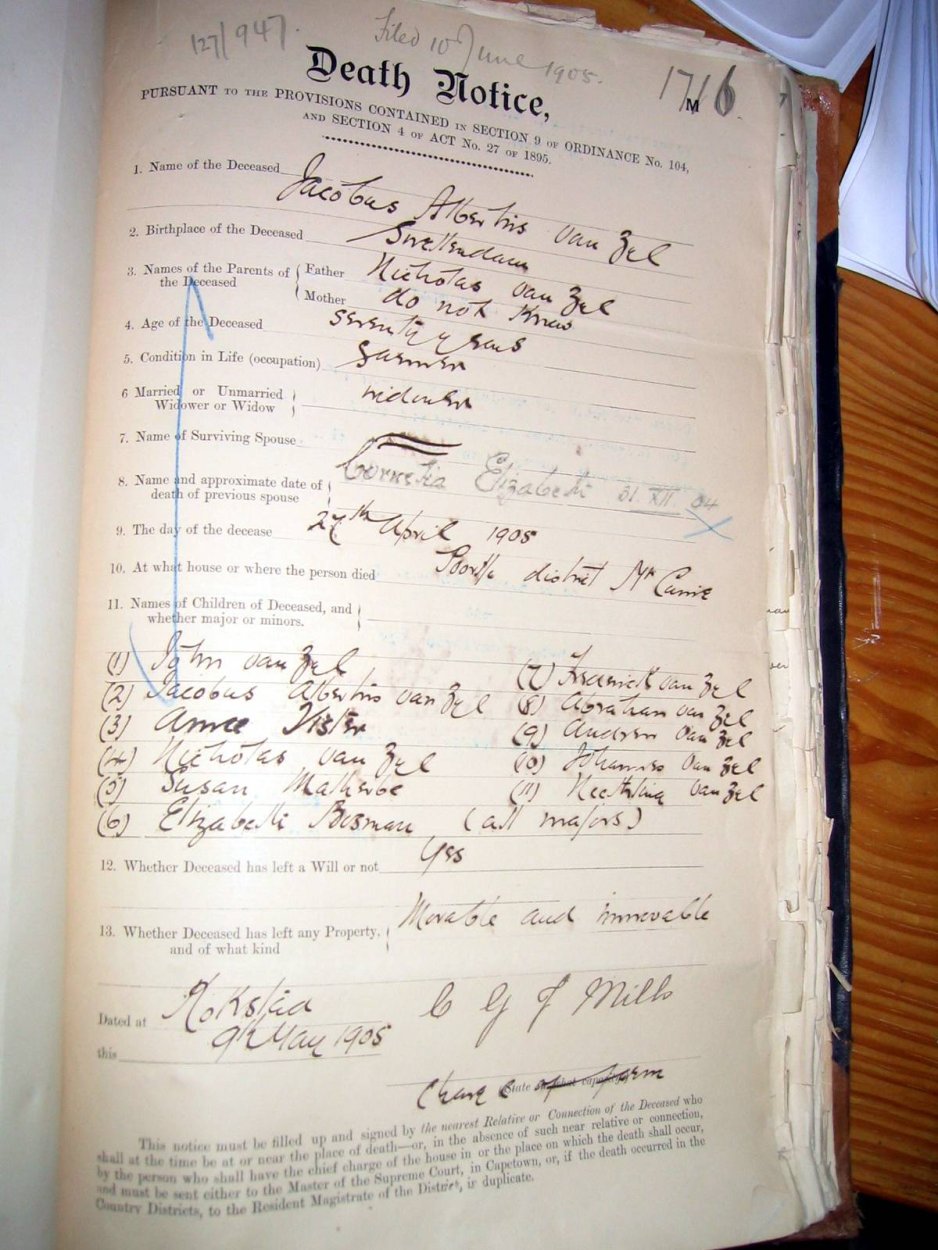 127/947.
Filed 10 June 1905.
1716
M
Death Notice,
PURSUANT TO THE PROVISIONS CONTAINED IN SECTION 9 OF ORDINANCE No. 104,
AND SECTION 4 OF ACT No. 27 OF 1895.
1. Name of the Deceased Jacobus Albertus van Zyl
2. Birthplace of the Deceased Swellendam
3. Names of the Parents of the Deceased
Father Nicholas van Zyl
Mother do not know
4. Age of the Deceased seventy years
5. Condition in Life (occupation) farmer
6 Married or Unmarried
Widower or Widow widower
7. Name of Surviving Spouse
8. Name and approximate date of
death of previous spouse Cornelia Elizabeth 31 XII. 04
9. The day of the decease 27th April 1905
10. At what house or where the person died district Mt Currie
11. Names of Children of Deceased, and
whether major or minors.
(1) John van Zyl
(2) Jacobus Albertus van Zyl
(3) Annie
(4) Nicholas van Zyl
(5) Susan Malherbe
(6) Elizabeth Bosman (all majors)
(7) Frederick van Zyl
(8) Abraham van Zyl
(9) Andrew van Zyl
(10) Johannes van Zyl
(11) van Zyl
12. Whether Deceased has left a Will or not Yes
13. Whether Deceased has left any Property,
and of what kind Movable and immovable
Dated at Kokstad
this 9th May 1905
C G F Mills
State in what capacity
This notice must be filled up and signed by the nearest Relative or Connection of the Deceased who
shall at the time be at or near the place of death—or, in the absence of such near relative or connection,
by the person who shall have the chief charge of the house in or the place on which the death shall occur,
and must be sent either to the Master of the Supreme Court, in Capetown, or, if the death occurred in the
Country Districts, to the Resident Magistrate of the District, in duplicate.